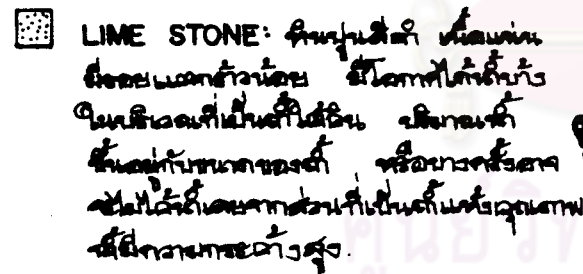 LIME STONE: หินปูนสีดำ เนื้อแน่น
มีรอยแตกร้าวน้อย มีโอกาสได้น้ำบ้าง
ในบริเวณที่เป็นถ้ำใต้ดิน ปริมาณน้ำ
ขึ้นอยู่กับขนาดของถ้ำ หรือบางครั้งอาจ
จะไม่ได้น้ำเลยจากส่วนที่เป็นถ้ำแห้งคุณภาพ
น้ำมีความกระด้างสูง.
ศูนย์วิ